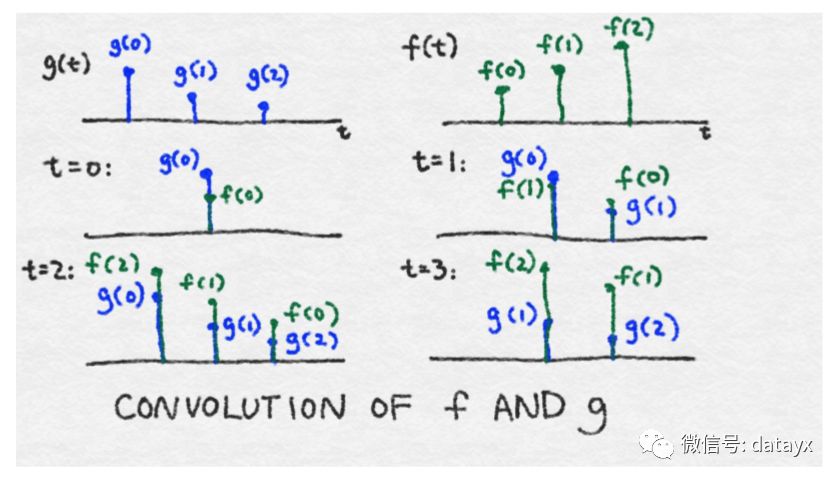 g(t) g(0) g(1) g(2) t
f(t) f(0) f(1) f(2) t
t=0: g(0) f(0)
t=1: g(0) f(1) f(0) g(1)
t=2: f(2) g(0) f(1) g(1) f(0) g(2)
t=3: f(2) g(1) f(1) g(2)
CONVOLUTION OF f AND g
微信号: datayx